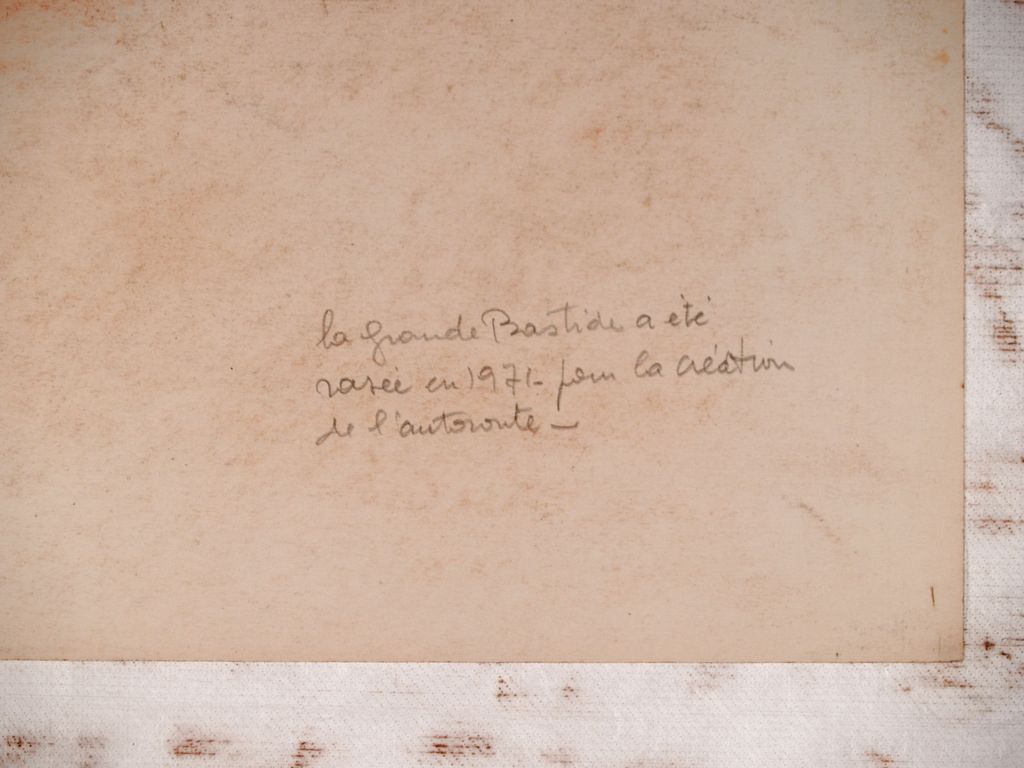 la grande Bastide a été
rasée en 1971 - pour la création
de l'autoroute -